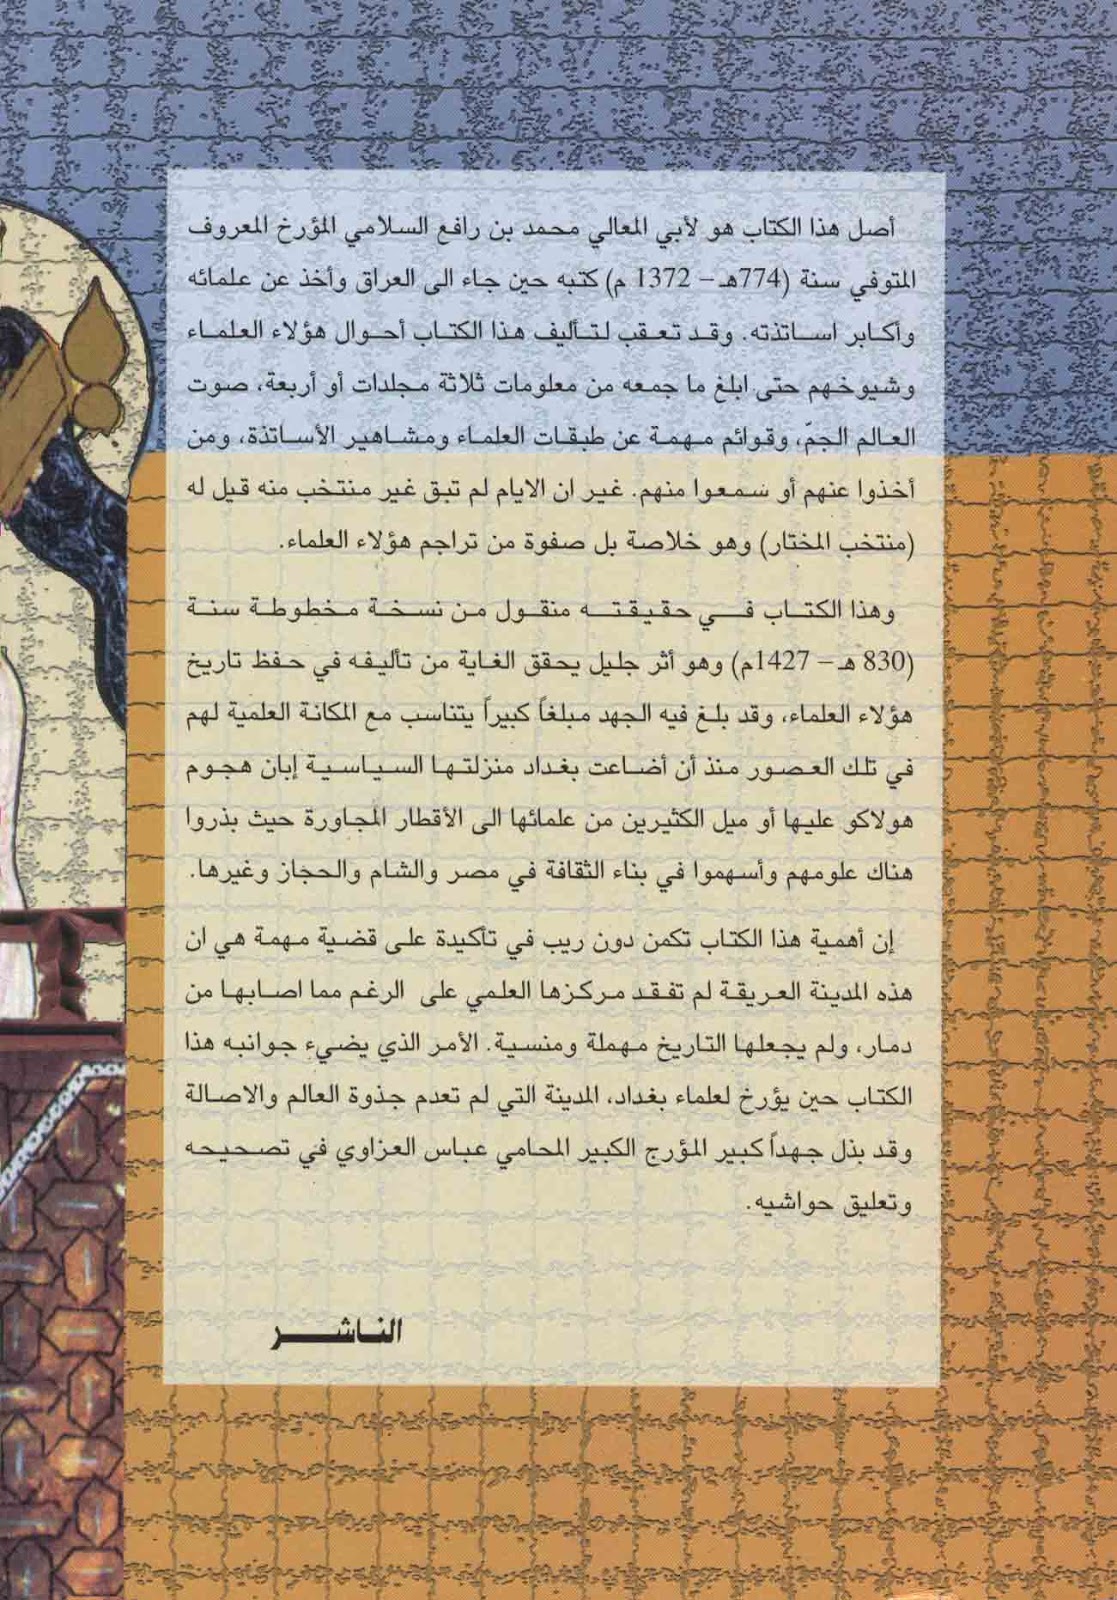 أصل هذا الكتاب هو لأبي المعالي محمد بن رافع السلامي المؤرخ المعروف
المتوفي سنة (774هـ – 1372 م) كتبه حين جاء الى العراق وأخذ عن علمائه
وأكابر اساتذته. وقد تعقب لتأليف هذا الكتاب أحوال هؤلاء العلماء
وشيوخهم حتى ابلغ ما جمعه من معلومات ثلاثة مجلدات أو أربعة، صوت
العالم الجمّ، وقوائم مهمة عن طبقات العلماء ومشاهير الأساتذة، ومن
أخذوا عنهم أو سمعوا منهم. غير ان الايام لم تبق غير منتخب منه قيل له
(منتخب المختار) وهو خلاصة بل صفوة من تراجم هؤلاء العلماء.
وهذا الكتاب في حقيقته منقول من نسخة مخطوطة سنة
(830 هـ – 1427م) وهو أثر جليل يحقق الغاية من تأليفه في حفظ تاريخ
هؤلاء العلماء، وقد بلغ فيه الجهد مبلغاً كبيراً يتناسب مع المكانة العلمية لهم
في تلك العصور منذ أن أضاعت بغداد منزلتها السياسية إبان هجوم
هولاكو عليها أو ميل الكثيرين من علمائها الى الأقطار المجاورة حيث بذروا
هناك علومهم وأسهموا في بناء الثقافة في مصر والشام والحجاز وغيرها.
إن أهمية هذا الكتاب تكمن دون ريب في تأكيدة على قضية مهمة هي ان
هذه المدينة العريقة لم تفقد مركزها العلمي على الرغم مما اصابها من
دمار، ولم يجعلها التاريخ مهملة ومنسية. الأمر الذي يضيء جوانبه هذا
الكتاب حين يؤرخ لعلماء بغداد، المدينة التي لم تعدم جذوة العالم والاصالة
وقد بذل جهداً كبير المؤرج الكبير المحامي عباس العزاوي في تصحيحه
وتعليق حواشيه.
الناشر